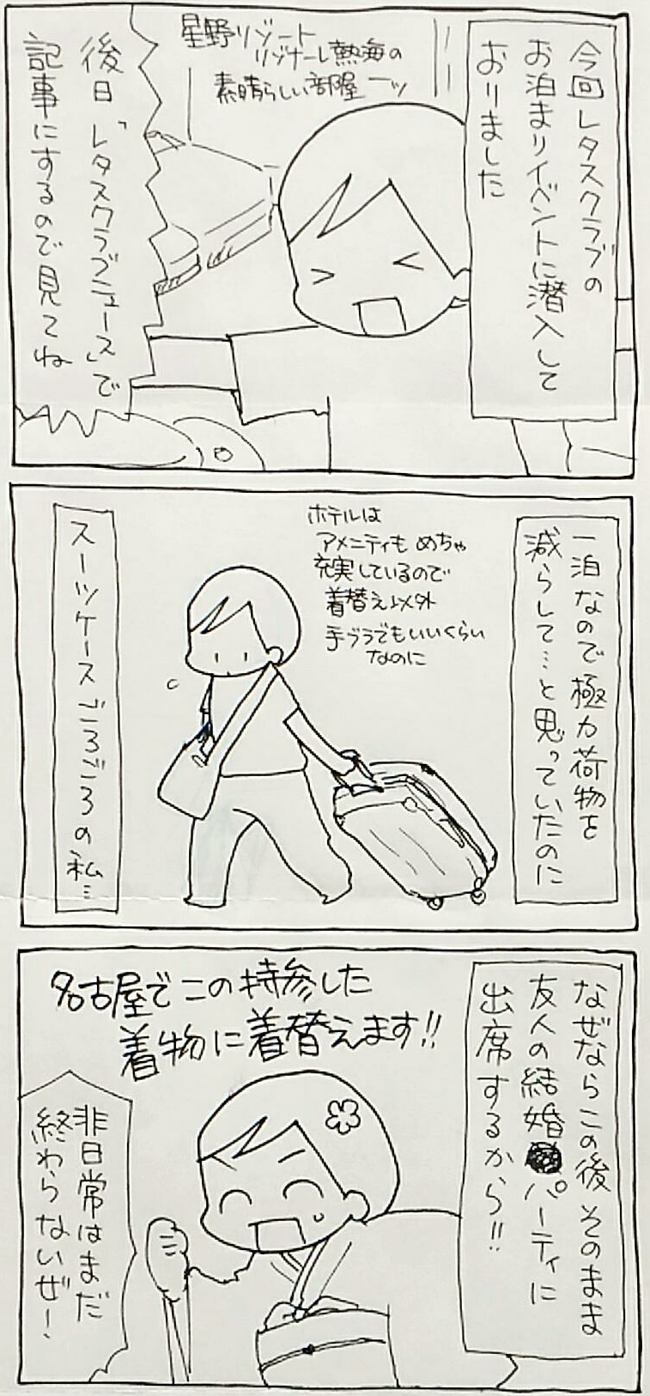 今回レタスクラブの
お泊まりイベントに潜入して
おりました
星野リゾート
リゾナーレ熱海の
素晴らしい部屋ーッ
後日「レタスクラブニュース」で
記事にするので見てね
一泊なので極力荷物を
減らして…と思っていたのに
ホテルは
アメニティもめちゃ
充実しているので
着替え以外
手ブラでもいいくらい
なのに
スーツケースごろごろの私…
なぜならこの後そのまま
友人の結婚パーティに
出席するから!!
名古屋でこの持参した
着物に着替えます!!
非日常はまだ
終わらないぜ!